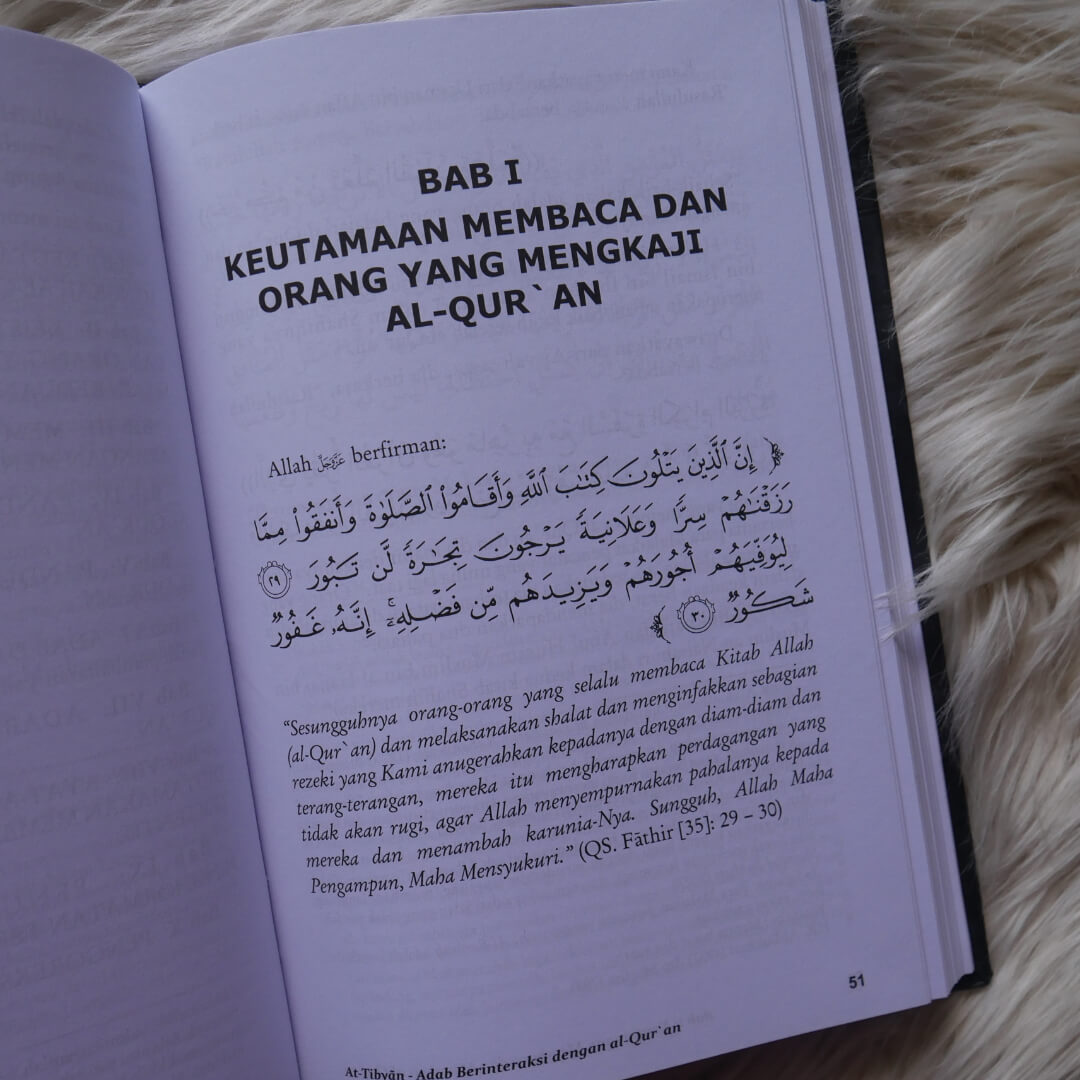 BAB I
KEUTAMAAN MEMBACA DAN
ORANG YANG MENGKAJI
AL-QUR`AN
Allah عَزَّوَجَلَّ berfirman:
﴿ إِنَّ ٱلَّذِينَ يَتْلُونَ كِتَٰبَ ٱللَّهِ وَأَقَامُوا۟ ٱلصَّلَوٰةَ وَأَنفَقُوا۟ مِمَّا
رَزَقْنَٰهُمْ سِرًّا وَعَلَانِيَةً يَرْجُونَ تِجَٰرَةً لَّن تَبُورَ ٢٩
لِيُوَفِّيَهُمْ أُجُورَهُمْ وَيَزِيدَهُم مِّن فَضْلِهِۦٓ ۚ إِنَّهُۥ غَفُورٌ
شَكُورٌ ٣٠ ﴾
“Sesungguhnya orang-orang yang selalu membaca Kitab Allah
(al-Qur`an) dan melaksanakan shalat dan menginfakkan sebagian
rezeki yang Kami anugerahkan kepadanya dengan diam-diam dan
terang-terangan, mereka itu mengharapkan perdagangan yang
tidak akan rugi, agar Allah menyempurnakan pahalanya kepada
mereka dan menambah karunia-Nya. Sungguh, Allah Maha
Pengampun, Maha Mensyukuri.” (QS. Fāthir [35]: 29 – 30)
51
At-Tibyān - Adab Berinteraksi dengan al-Qur`an